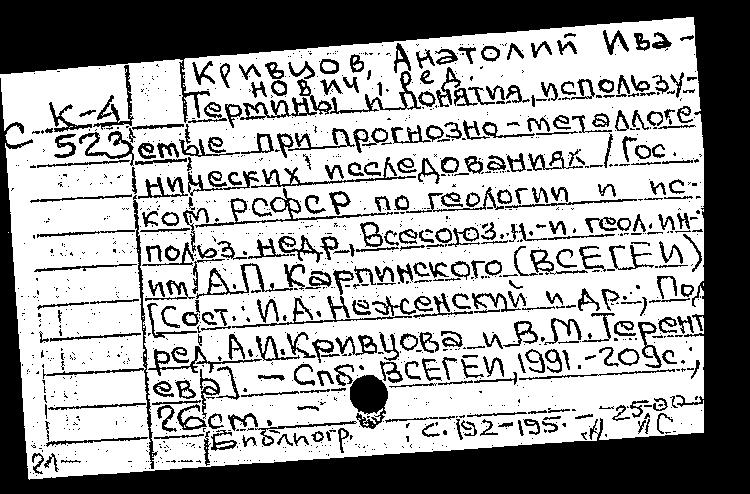 Кривцов, Анатолий Ива-
нович, ред.
К-4 Термины и понятия, использу-
С 523 емые при прогнозно-металлоге-
нических исследованиях / Гос.
ком. РСФСР по геологии и ис-
польз. недр, Всесоюз. н.-и. геол. ин-т
им. А.П. Карпинского (ВСЕГЕИ)
[Сост.: И.А. Неженский и др.; Под
ред. А.И. Кривцова и В.М. Терент
ева]. – Спб: ВСЕГЕИ, 1991. - 209с.;
26 см. –
Библиогр. : с. 192-195. –
25-00